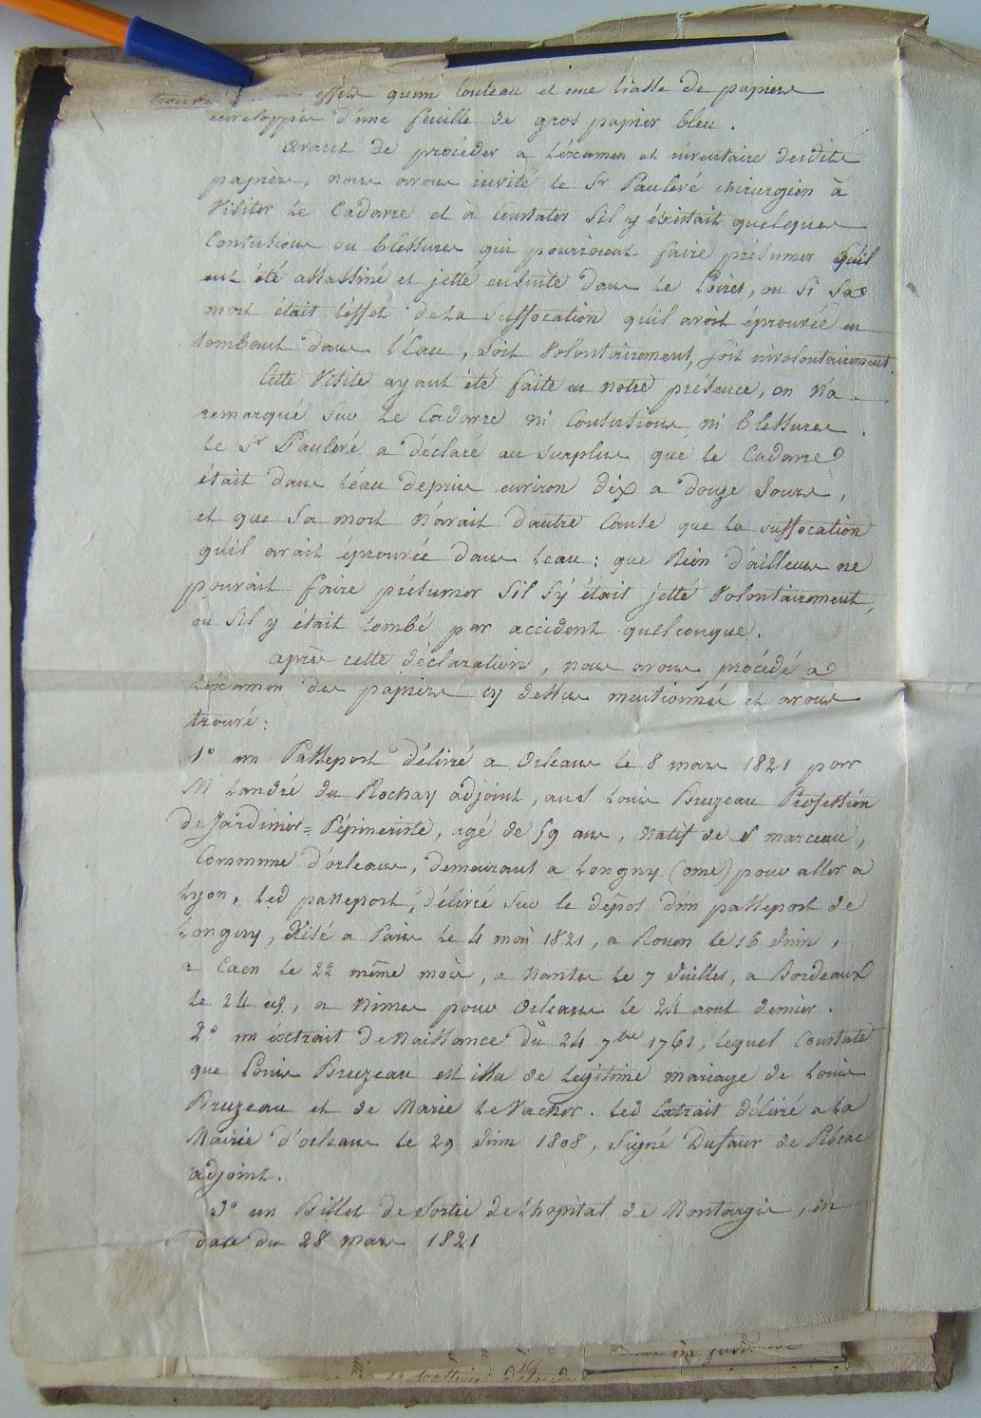 effets qu'un couteau et une liasse de papiers
enveloppés d'une feuille de gros papier bleu.
avant de procéder a l'éxamen et inventaire desdits
papiers, nous avons invité le Sr Pauleré chirurgien à
Visiter le Cadavre et à Constater s'il y éxistait quelques
Contusions ou blessures qui pourroient faire présumer quil
eut été assassiné et jetté ensuite dans le Loiret, ou si sa
mort était l'effet de la suffocation qu'il avoit éprouvée en
tombant dans l'Eau, soit Volontairement, soit involontairement.
Cette Visite ayant été faite en notre présence, on n'a
remarqué sur le Cadavre ni Contusions ni blessures.
le Sr Pauleré a déclaré au surplus que le Cadavre
était dans l'éau depuis environ dix a douze Jours,
et que sa mort n'avait d'autre Cause que la suffocation
qu'il avait éprouvée dans leau : que Rien d'ailleurs ne
pouvait faire présumer s'il s'y était jetté Volontairement,
ou s'il y était tombé par accident quelconque.
après cette déclaration, nous avons procédé a
L'éxamen des papiers cy dessus mentionnés et avons
trouvé :
1° un Passeport délivré a Orleans le 8 mars 1821 par
Mr Landré du Rochay adjoint, au Sr Louis Bruzeau Profession
de Jardinier = Pépinieriste, agé de 59 ans, natif de St marceau,
Commune d'orleans, demeurant a Longny (orne) pour aller a
Lyon, led passeport, délivré sur le dépos d'un passeport de
Longny, Visé a Paris le 4 mai 1821, a Rouen le 16 Juin,
a Caen le 22 même mois, a Nantes le 7 Juillet, a Bordeaux
le 24 id, a Nimes pour Orleans le 24 aout dernier.
2° un éxtrait de Naissance du 24 7bre 1761, lequel Constate
que Louis Bruzeau est issu de legitime mariage de Louis
Bruzeau et de Marie LeVacher. led Extrait délivré a la
Mairie d'orleans le 29 Juin 1808, Signé Dufaur de Pibrac
adjoint.
3° un Billet de Sortie de L'hopital de Montargis, en
date du 28 mars 1821